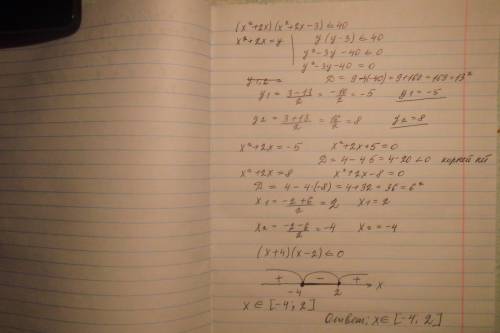 (x²+2x)(x²+2x-3) ≤ 40
x²+2x=y y(y-3) ≤ 40
y²-3y-40 ≤ 0
y²-3y-40 = 0
D = 9-4(-40) = 9+160 = 169 = 13²
y1 = (3-13)/2 = -10/2 = -5 y1 = -5
y2 = (3+13)/2 = 16/2 = 8 y2 = 8
x²+2x = -5 x²+2x+5 = 0
D = 4-4·5 = 4-20 < 0 корней нет
x²+2x = 8 x²+2x-8 = 0
D = 4-4·(-8) = 4+32 = 36 = 6²
x1 = (-2+6)/2 = 2 x1 = 2
x2 = (-2-6)/2 = -4 x2 = -4
(x+4)(x-2) ≤ 0
+ - +
-4 2 x
x ∈ [-4, 2]
Ответ: x ∈ [-4, 2]